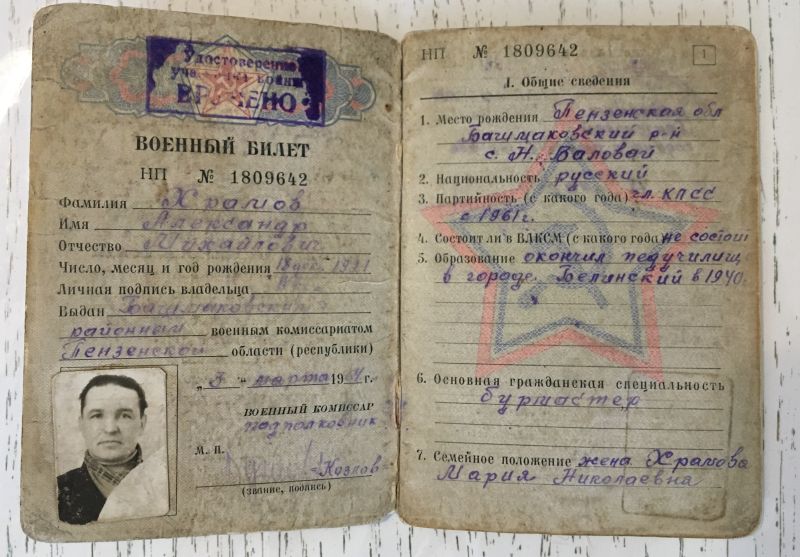 Удостоверение
войны
ВРУЧЕНО
ВОЕННЫЙ БИЛЕТ
НП № 1809642
Фамилия Храмов
Имя Александр
Отчество Михайлович
Число, месяц и год рождения 1921
Личная подпись владельца
Выдан Башмаковским
районным военным комиссариатом
Пензенской области (республики)
„3" марта 19 г.
ВОЕННЫЙ КОМИССАР
подполковник
М. П.
=Козлов=
(звание, подпись)
НП № 1809642
1
I. Общие сведения
1. Место рождения Пензенская обл
Башмаковский р-н
с. Н. Валовай
2. Национальность русский
3. Партийность (с какого года) чл. КПСС
с 1961 г.
4. Состоит ли в ВЛКСМ (с какого года) не состои
5. Образование окончил педучилищ
в городе Белинский в 1940
6. Основная гражданская специальность
бурмастер
7. Семейное положение жена Храмова
Мария Николаевна